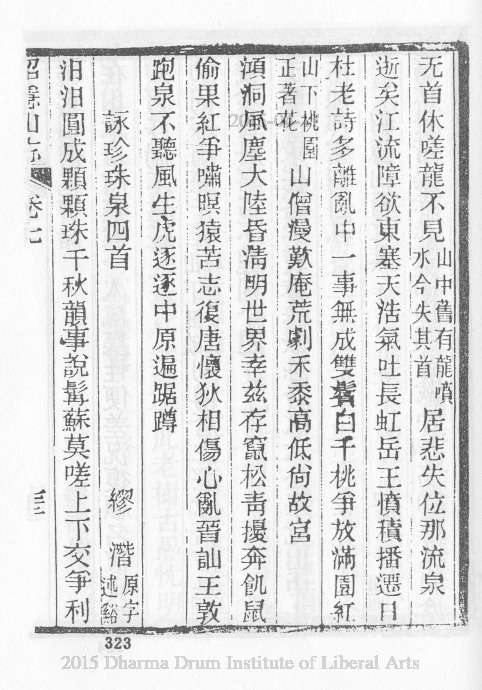 无首休嗟龍不見山中舊有龍噴水今失其首居悲失位那流泉
逝矣江流障欲東塞天浩氣吐長虹岳王憤積播遷日
杜老詩多離亂中一事無成雙鬢白千桃爭放滿園紅
山下桃園正著花山僧漫歎庵荒劇禾黍高低尙故宮
澒洞風塵大陸昏淸明世界幸茲存竄松靑擾奔飢鼠
偷果紅爭嘯暝猿苦志復唐懷狄相傷心亂晉訕王敦
跑泉不聽風生虎逐逐中原遍踞蹲
詠珍珠泉四首 繆潛原字述谿
汨汨圓成顆顆珠千秋韻事說髯蘇莫嗟上下交爭利
卷七
三三
323
2015 Dharma Drum Institute of Liberal Arts